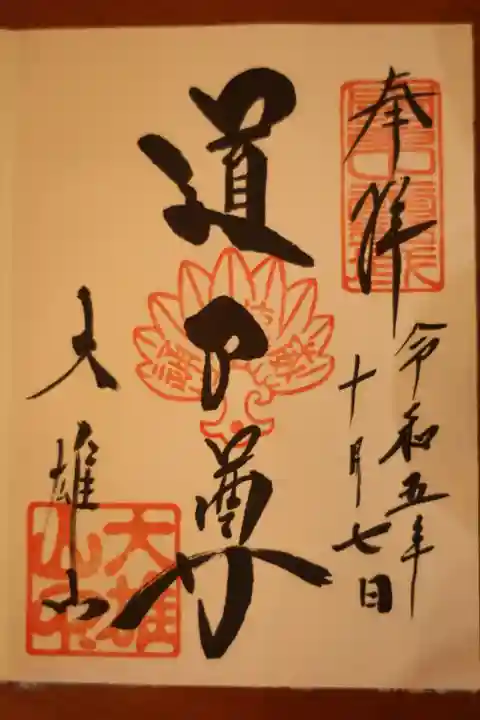 奉拝
令和五年
十月七日
道了尊
大雄山
大雄山印